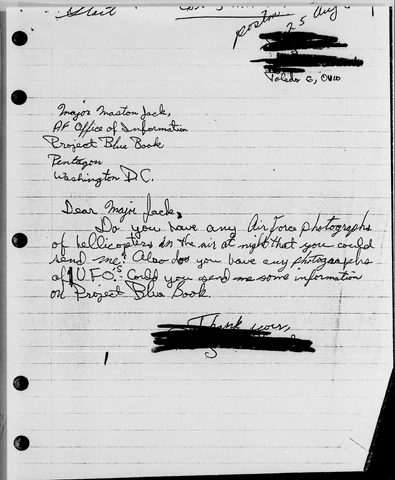 25 Aug
Toledo 6, Ohio
Major Maston Jack,
AF Office of Information
Project Blue Book
Pentagon
Washington D.C.
Dear Major Jack,
Do you have any Air Force photographs
of hellicopters in the air at night that you could
send me? Also do you have any photographs
of UFO's. Could you send me some information
on Project Blue Book.
Thank you,